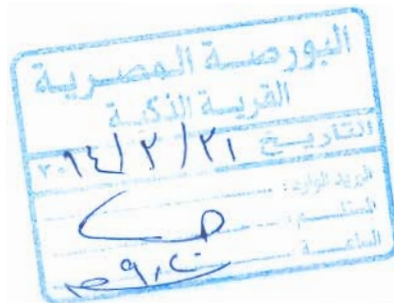 البورصة المصرية
القرية الذكية
التاريخ ٢١ / ٢ / ٢٠١٤
البريد الوارد :
المستلم :
الساعة